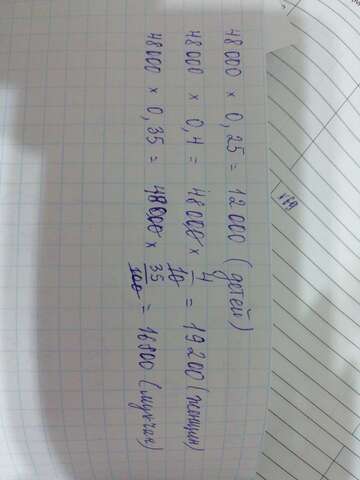 №79
48000 × 0,25 = 12000 (детей)
48000 × 0,4 = 48000 × 4/10 = 19200 (женщин)
48000 × 0,35 = 48000 × 35/100 = 16800 (мужчин)